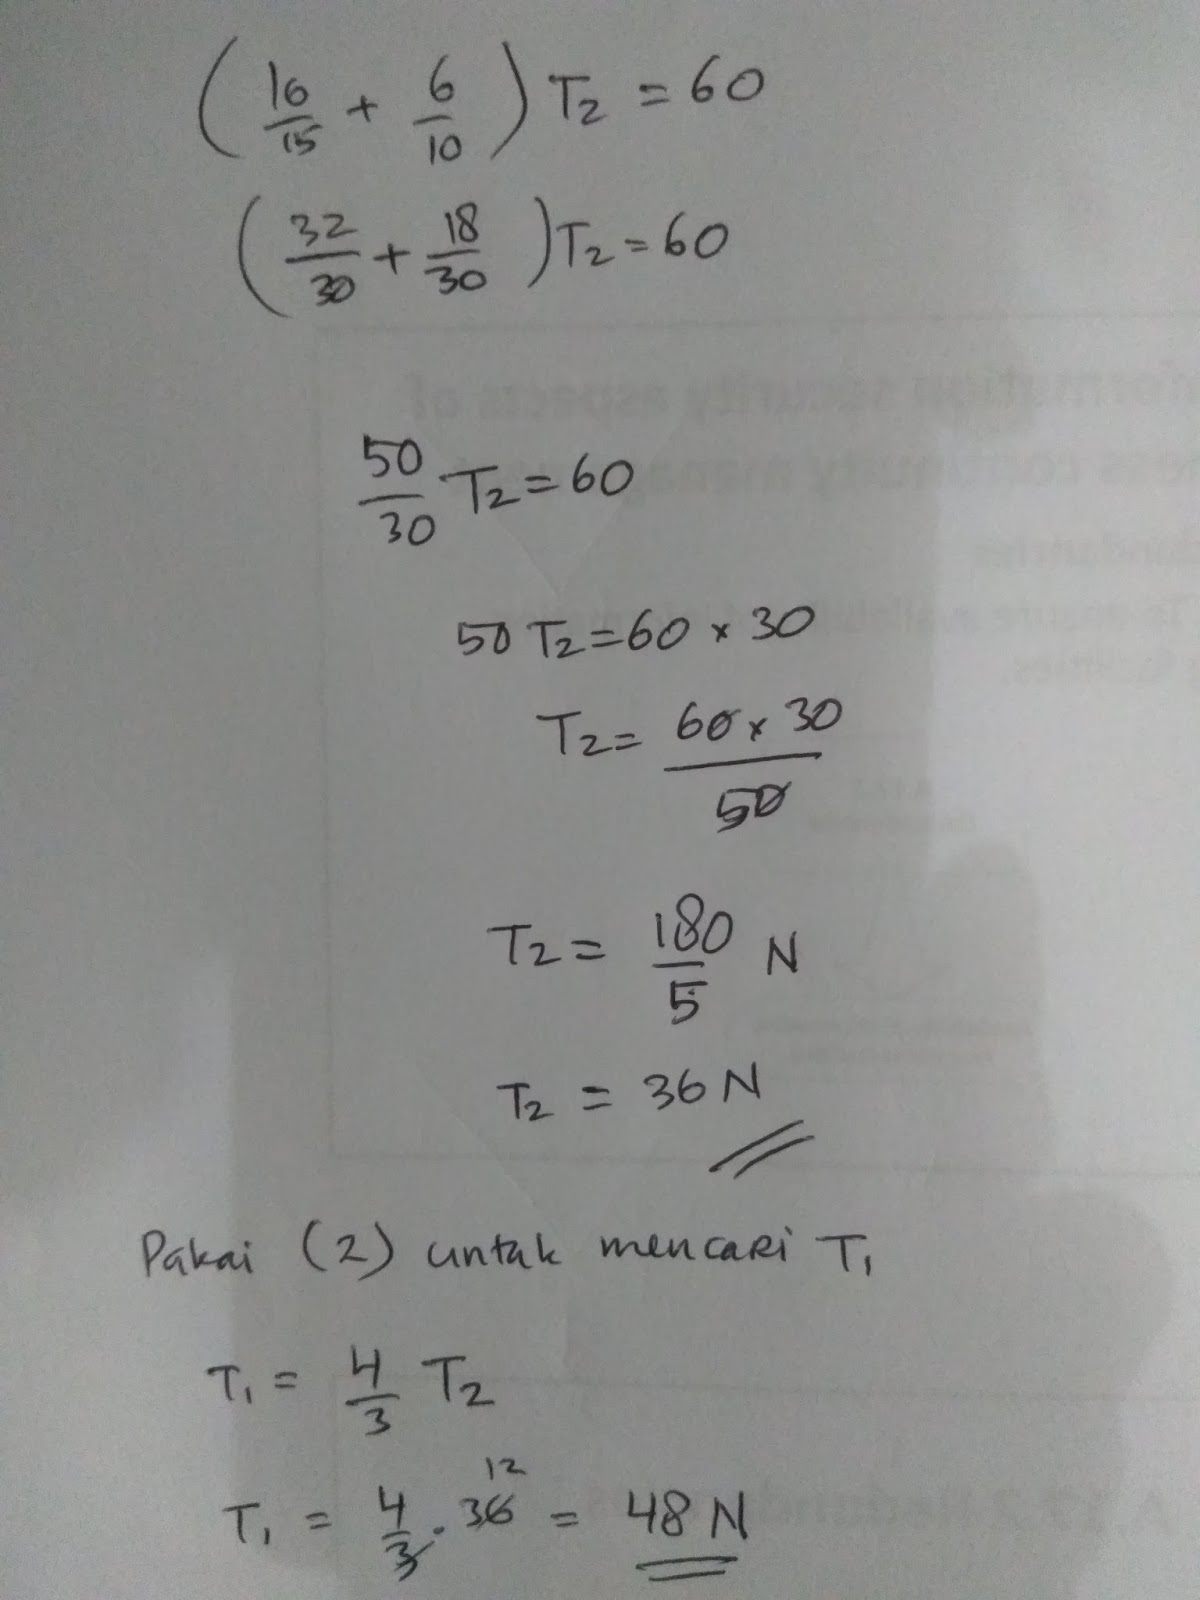 (16/15 + 6/10) T₂ = 60
(32/30 + 18/30) T₂ = 60
50/30 T₂ = 60
50 T₂ = 60 x 30
T₂ = 60 x 30 / 50
T₂ = 180/5 N
T₂ = 36 N
Pakai (2) untuk mencari T₁
T₁ = 4/3 T₂
12
T₁ = 4/3 . 36 = 48 N